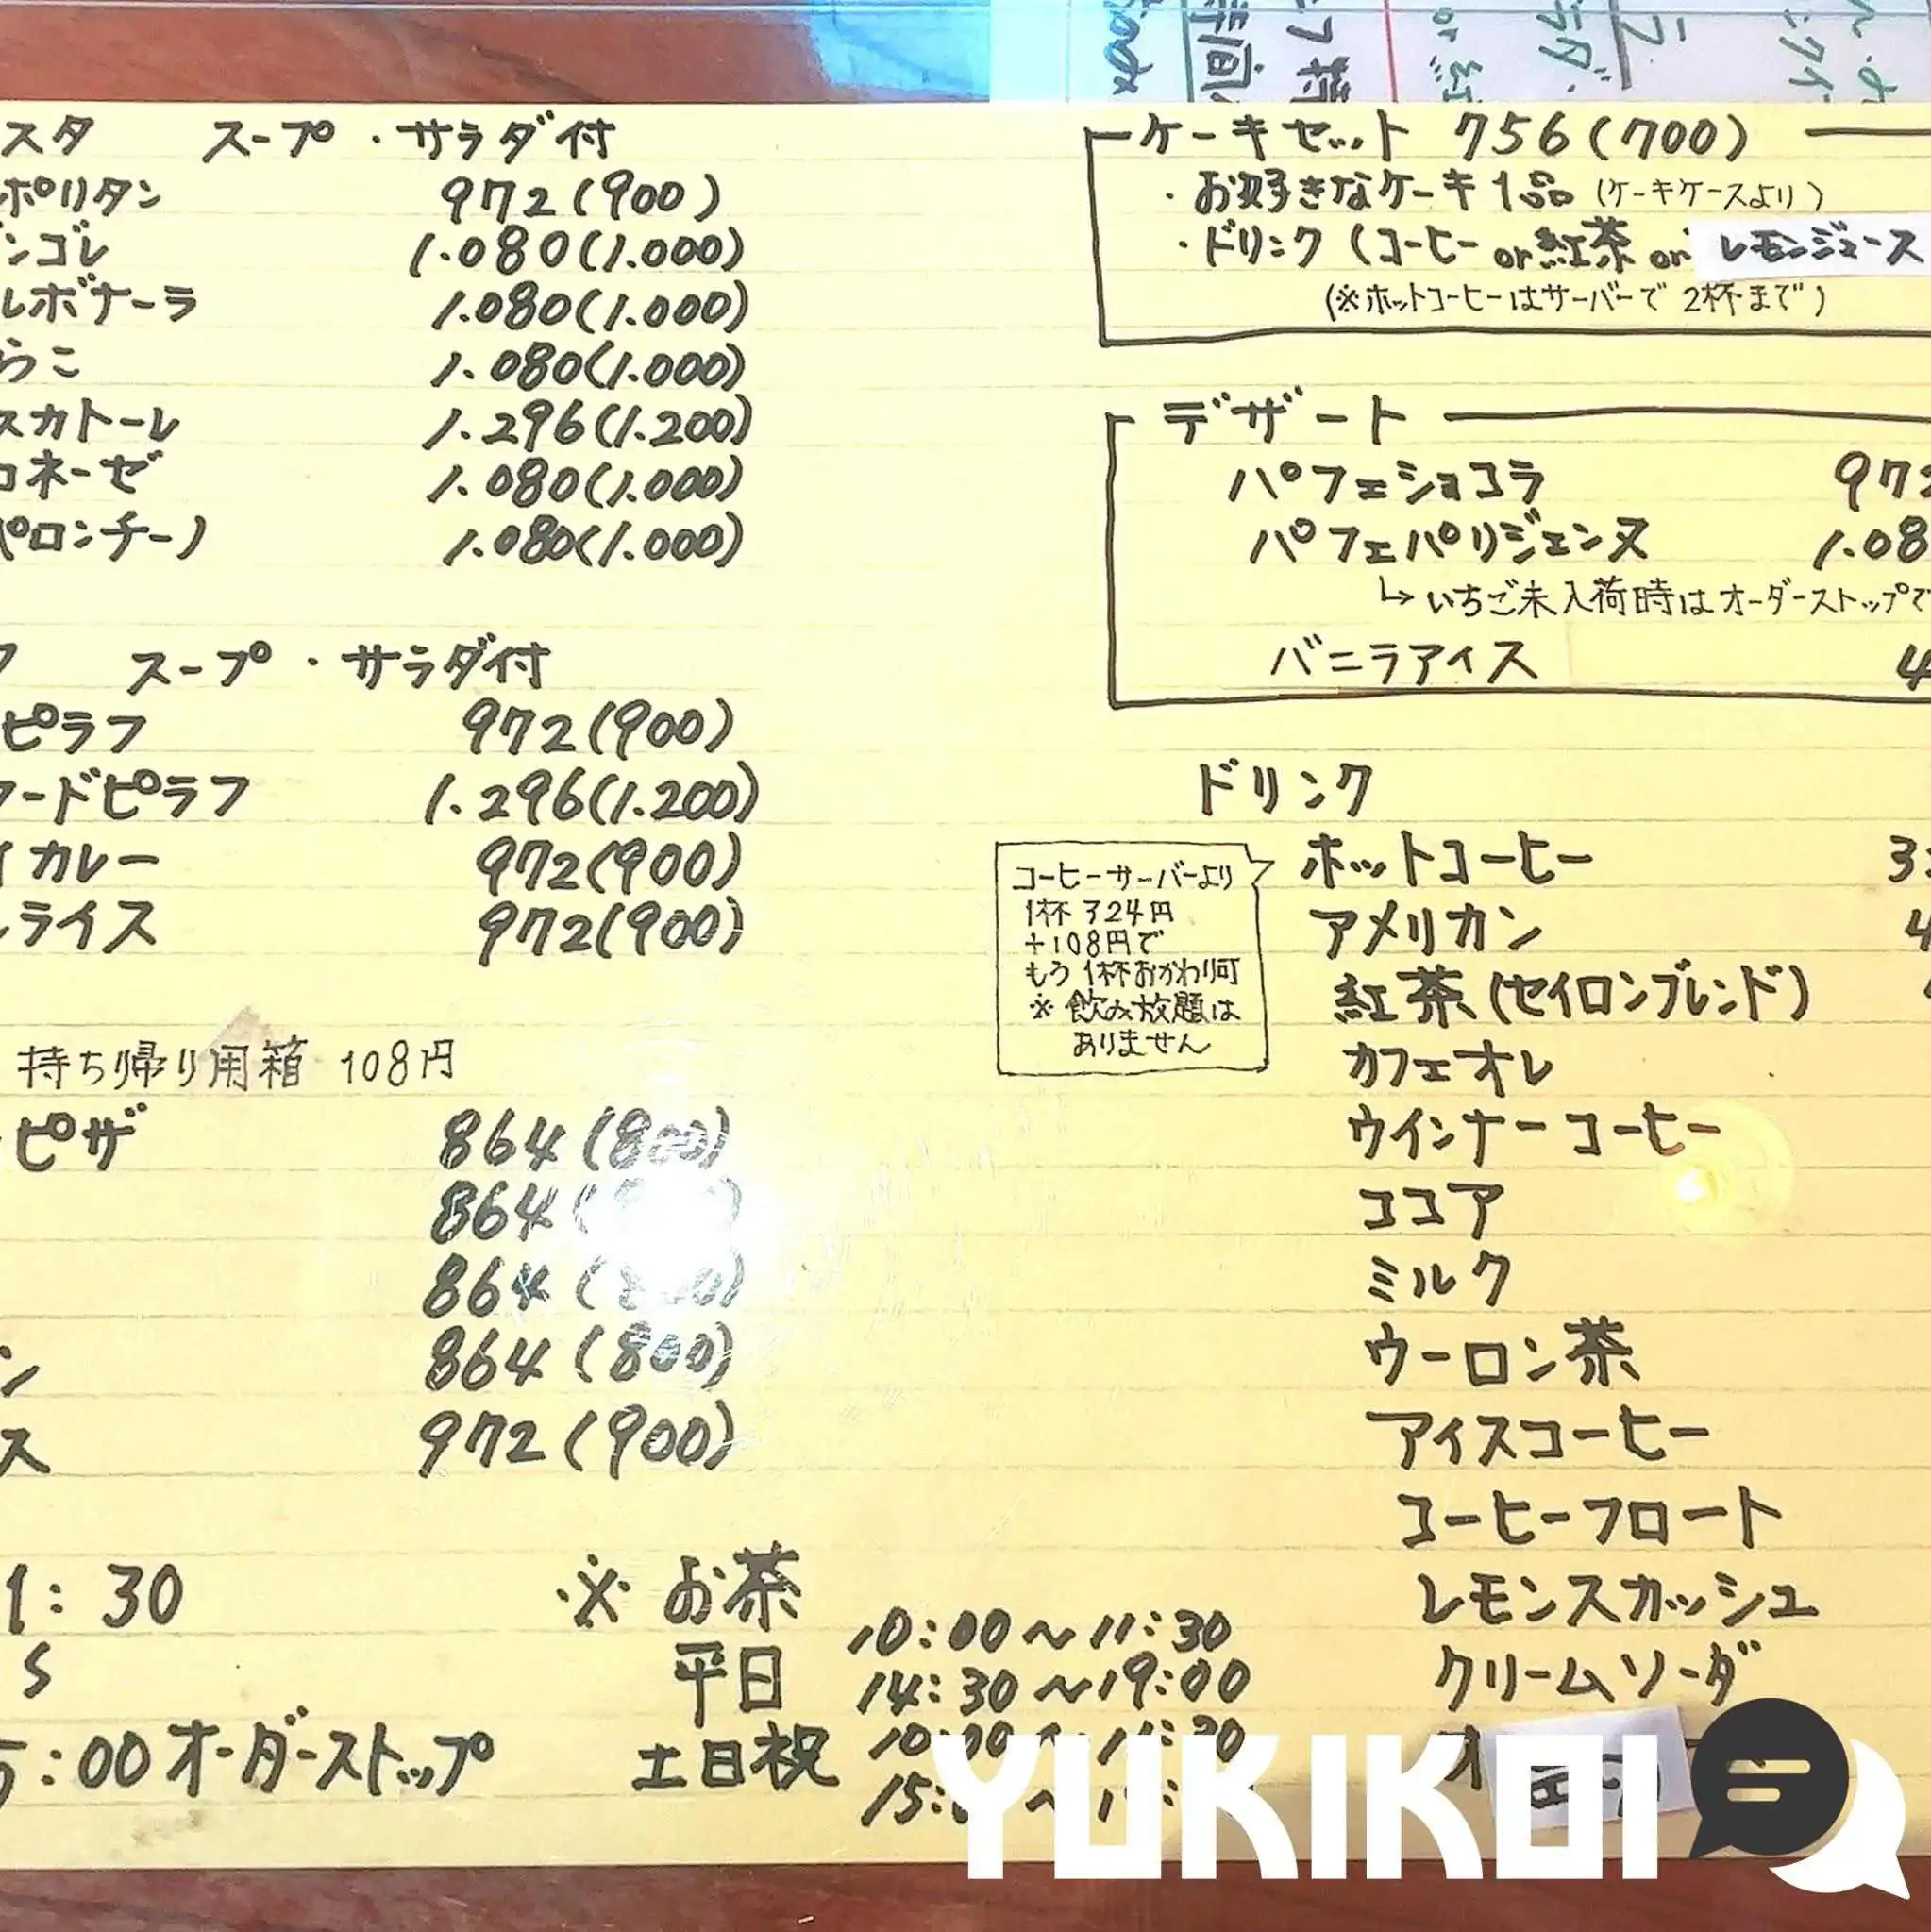 スタ スープ・サラダ付
ポリタン 972(900)
ンゴレ 1.080(1.000)
ルボナーラ 1.080(1.000)
らこ 1.080(1.000)
スカトーレ 1.296(1.200)
ロネーゼ 1.080(1.000)
ペロンチーノ 1.080(1.000)
フ スープ・サラダ付
ピラフ 972(900)
フードピラフ 1.296(1.200)
イカレー 972(900)
ムライス 972(900)
持ち帰り用箱 108円
ピザ 864(800)
864
864
ン 864(800)
ス 972(900)
1:30
S
5:00 オーダーストップ
※ お茶
平日 10:00~11:30
14:30~19:00
土日祝
ケーキセット 756(700)
・お好きなケーキ1品 (ケーキケースより)
・ドリンク (コーヒー or 紅茶 or レモンジュース
(※ホットコーヒーはサーバーで 2杯まで)
デザート
パフェショコラ 972
パフェパリジェンヌ 1.08
↳ いちご未入荷時はオーダーストップで
バニラアイス 4
ドリンク
コーヒーサーバーより
1杯 324円
+108円で
もう1杯おかわり可
※飲み放題は
ありません
ホットコーヒー 3
アメリカン 4
紅茶(セイロンブレンド)
カフェオレ
ウインナーコーヒー
ココア
ミルク
ウーロン茶
アイスコーヒー
コーヒーフロート
レモンスカッシュ
クリームソーダ
YUKIKOI